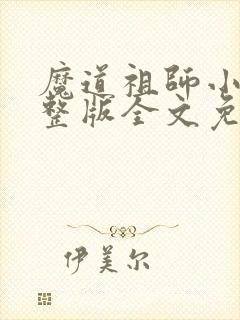 魔道祖师小
整版全文免
伊美尔